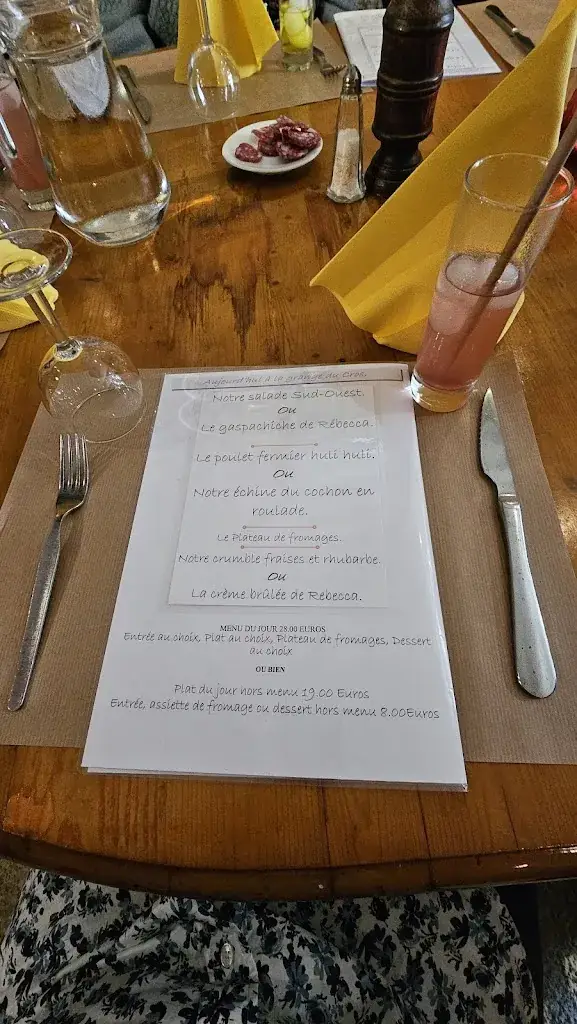 Aujourd'hui à la grange du Cros.
Notre salade Sud-Ouest.
Ou
Le gaspachiche de Rébecca.
Le poulet fermier huli huli.
Ou
Notre échine du cochon en
roulade.
Le Plateau de fromages.
Notre crumble fraises et rhubarbe.
Ou
La crème brûlée de Rebecca.
MENU DU JOUR 28.00 EUROS
Entrée au choix, Plat au choix, Plateau de fromages, Dessert
au choix
OU BIEN
Plat du jour hors menu 19.00 Euros
Entrée, assiette de fromage ou dessert hors menu 8.00Euros